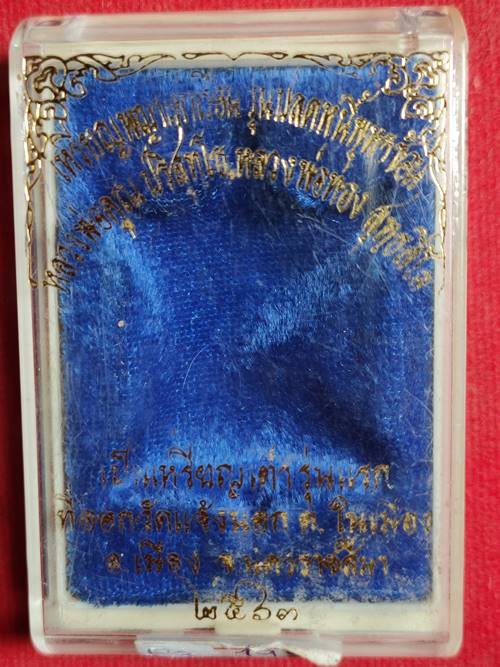 เหรียญพญาเต่าเรือน รุ่นปลดหนี้มหาโชค
หลวงพ่อคูณ ปริสุทโธ, หลวงพ่อทอง สุทธสีโล
เป็นเหรียญเต่ารุ่นแรก
ที่ออกวัดแจ้งนอก ต. ในเมือง
อ. เมือง จ. นครราชสีมา
๒๕๖๓